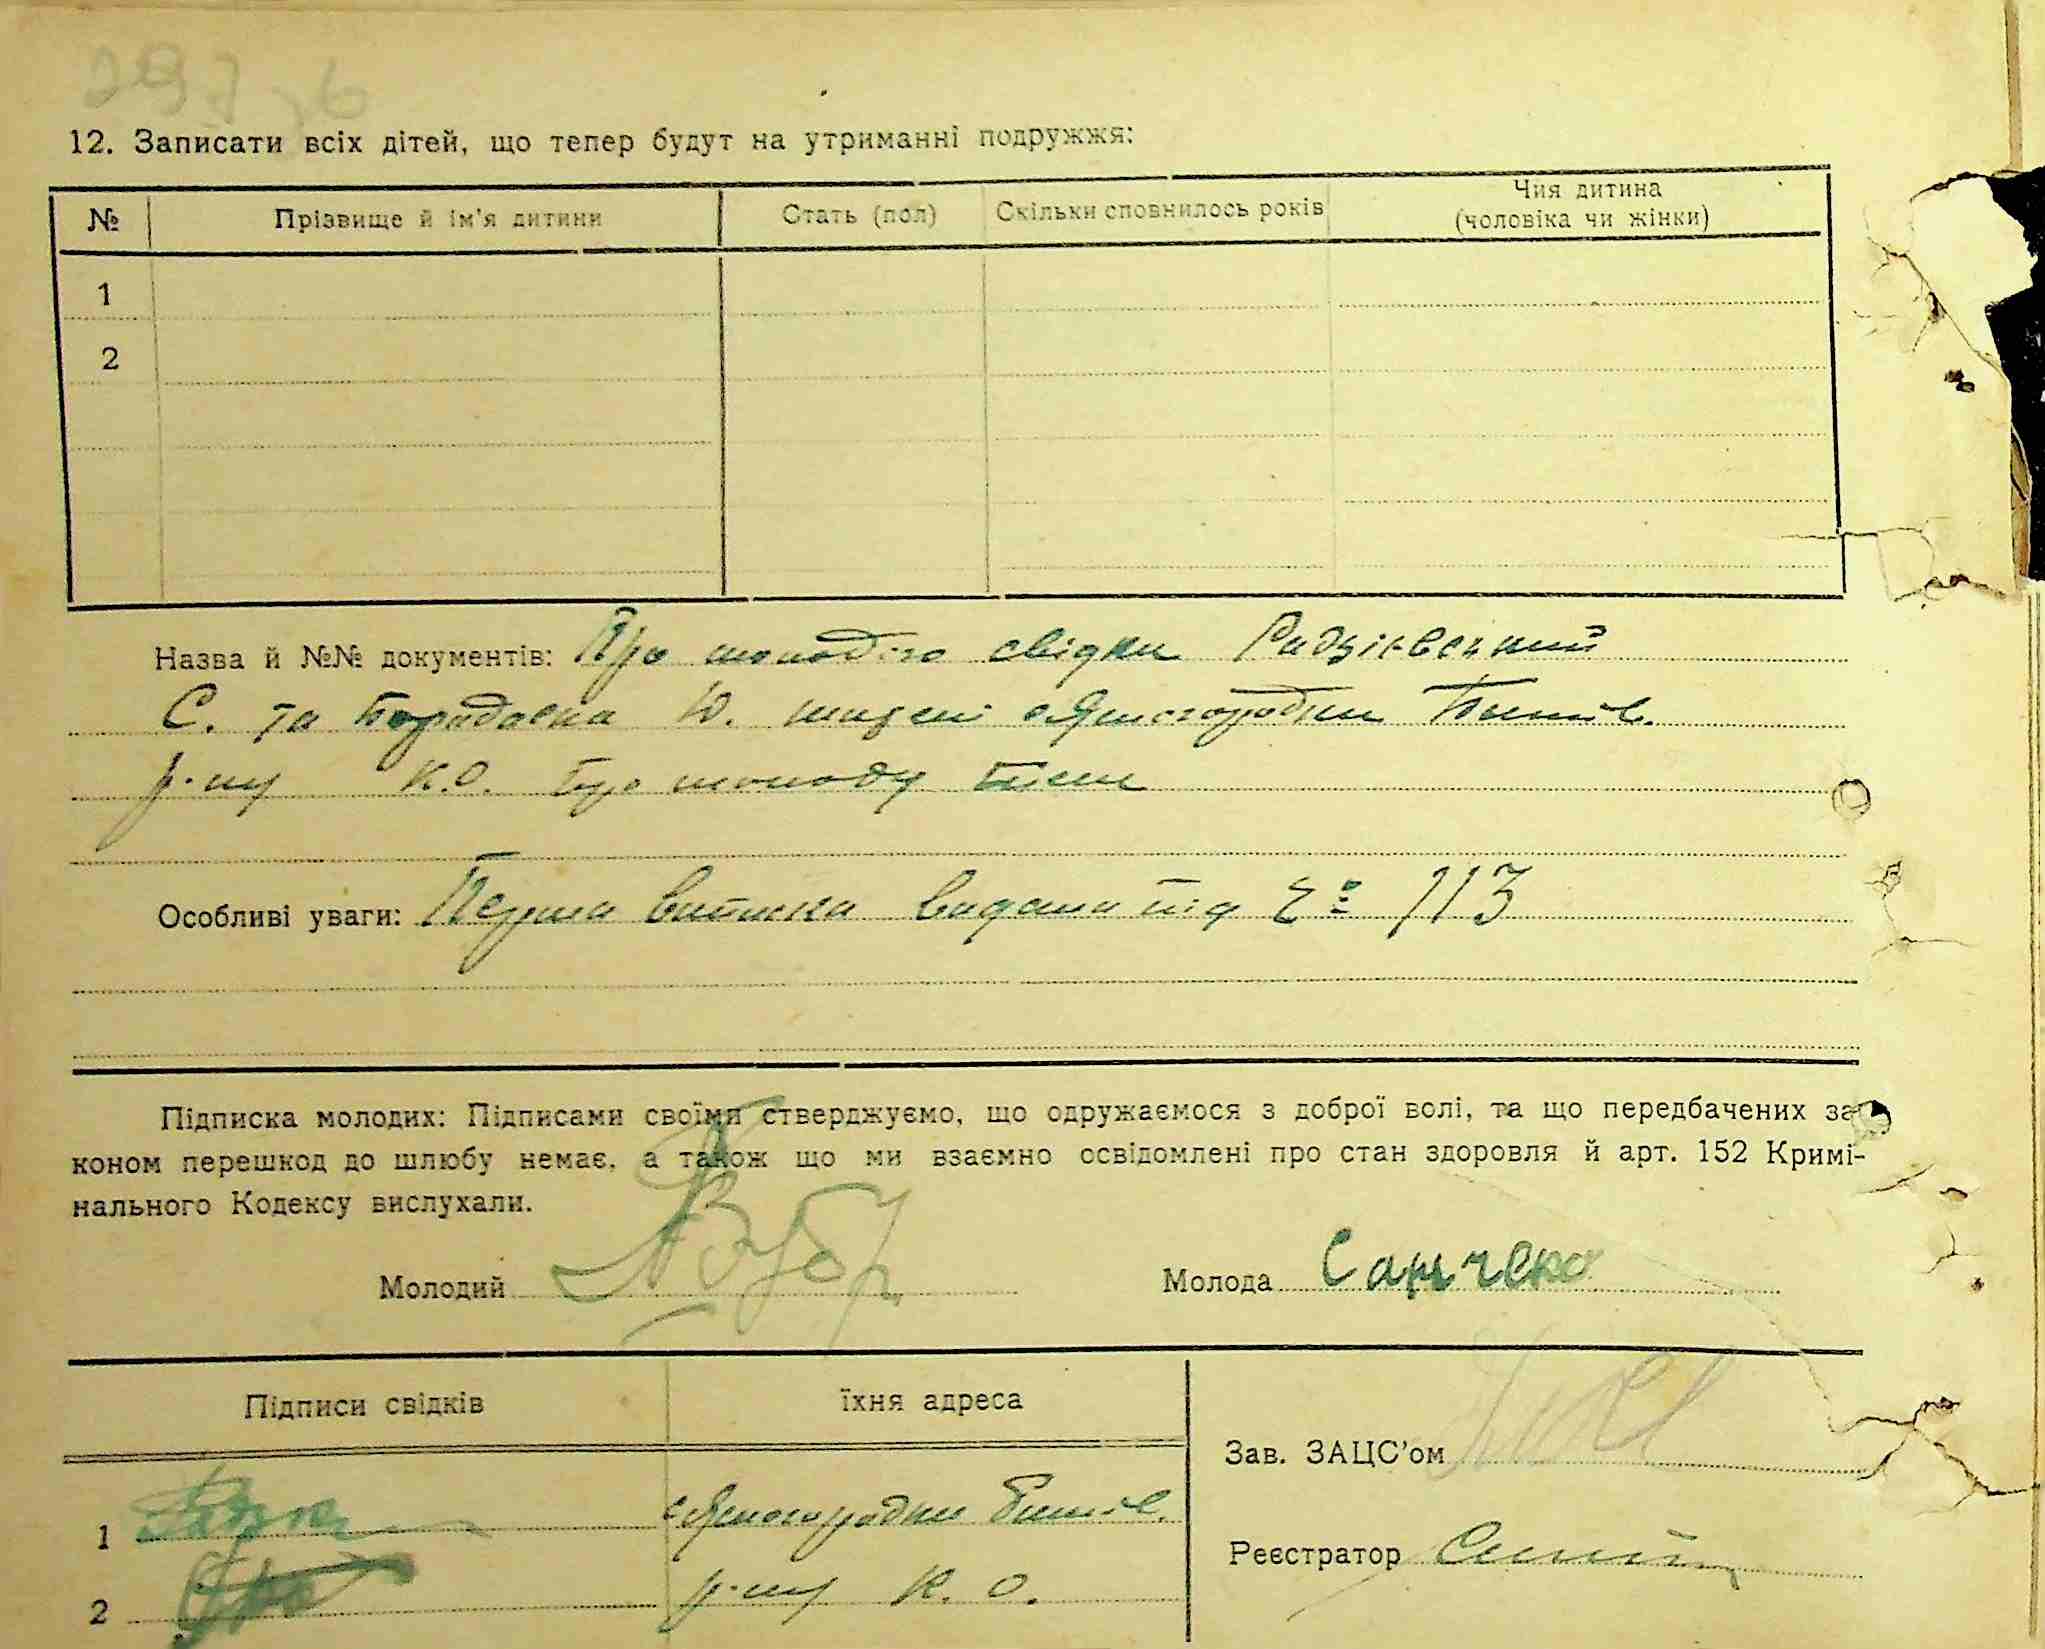 12. Записати всіх дітей, що тепер будут на утриманні подружжя:
№ Прізвище й ім'я дитини Стать (пол) Скільки сповнилось років Чия дитина (чоловіка чи жінки)
1
2
Назва й №№ документів: Про молодого свідки Радзієвський
С. та Ю. мешк с. Ясногородки Бишів.
р-ну К.О. Про молоду
Особливі уваги: Перша виписка видана під № 113
Підписка молодих: Підписами своїми стверджуємо, що одружаємося з доброї волі, та що передбачених за-
коном перешкод до шлюбу немає, а також що ми взаємно освідомлені про стан здоровля й арт. 152 Кримі-
нального Кодексу вислухали.
Молодий Молода
Підписи свідків їхня адреса
Зав. ЗАЦС'ом
1 с. Ясногородки Бишів.
Реєстратор
2 р-ну К. О.